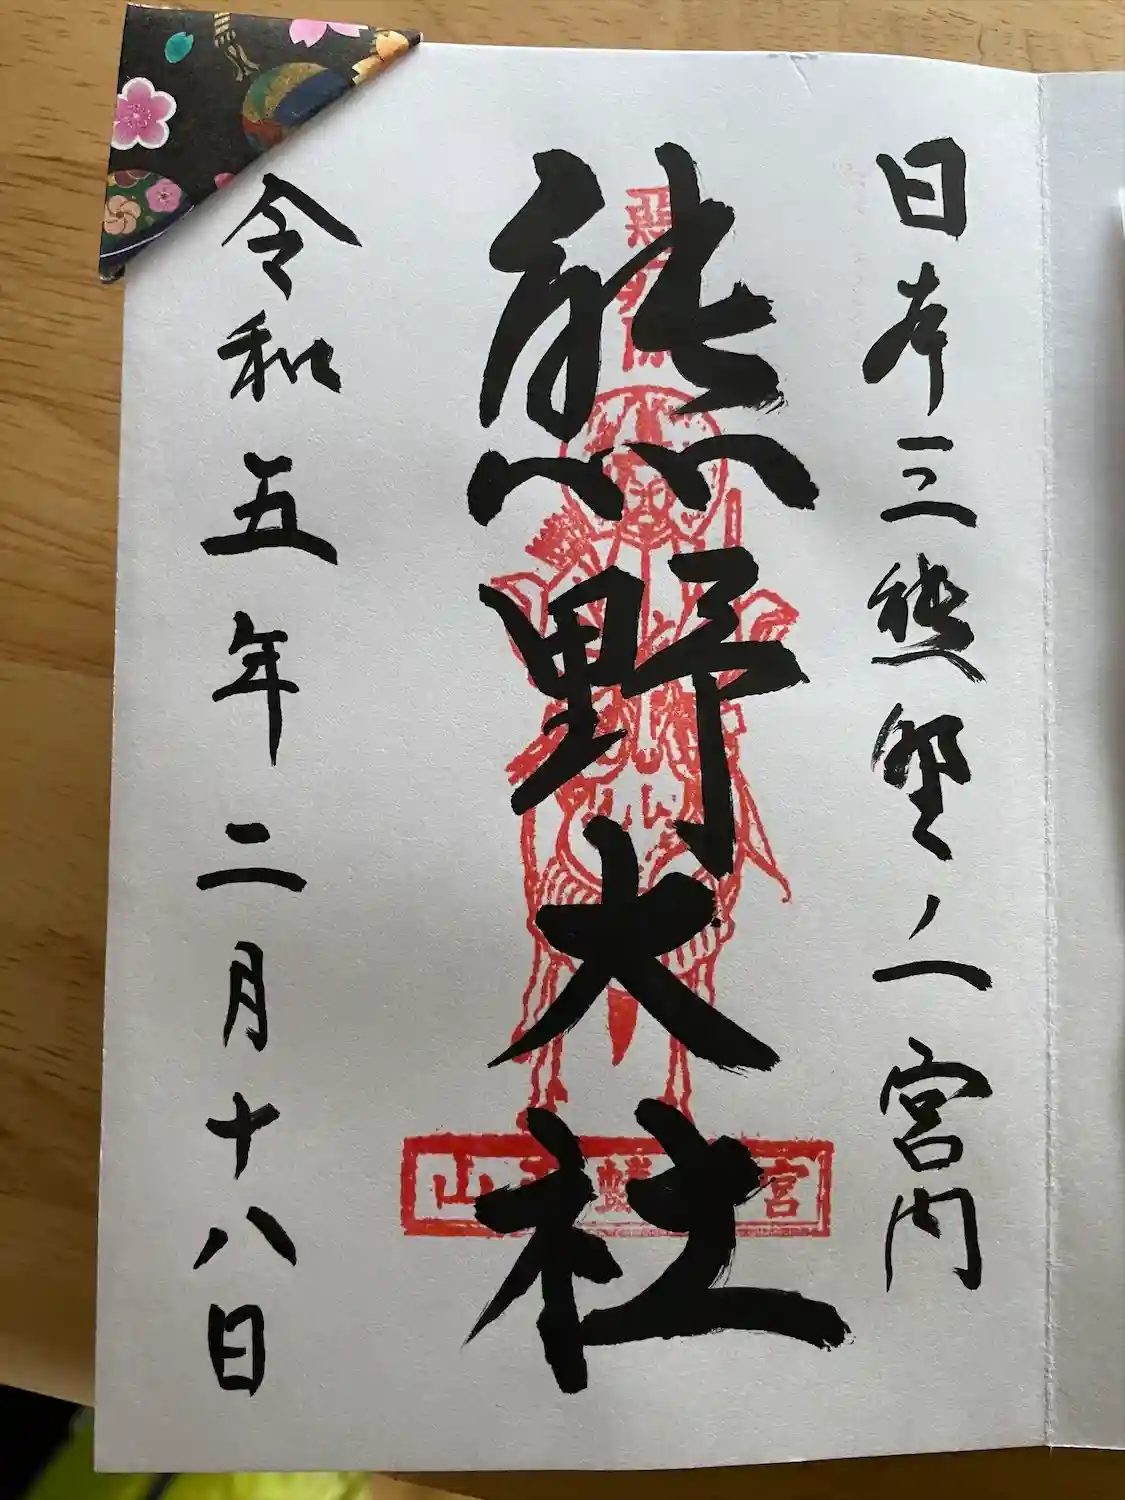 日本三熊野ノ一宮内
熊野大社
宮 蠄 山
令和五年二月十八日